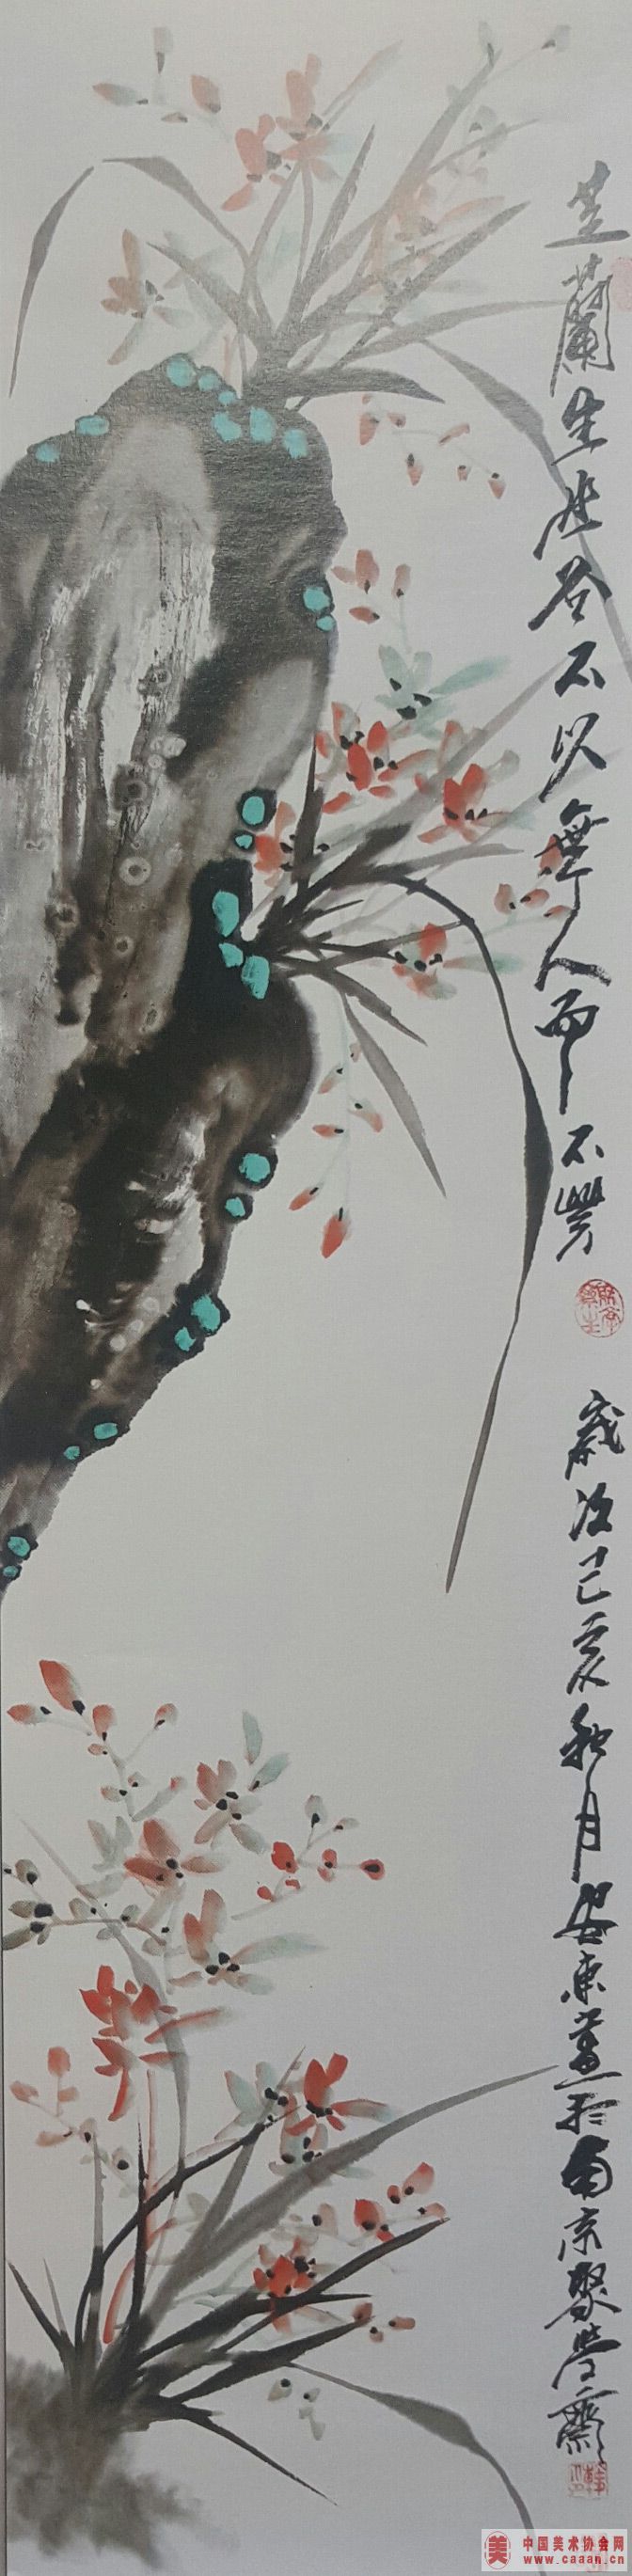 芝蘭生生谷不以無人而不芳
歲次己亥秋月安東畫於南京聚學齋
中国美术协会网
www.caaan.cn